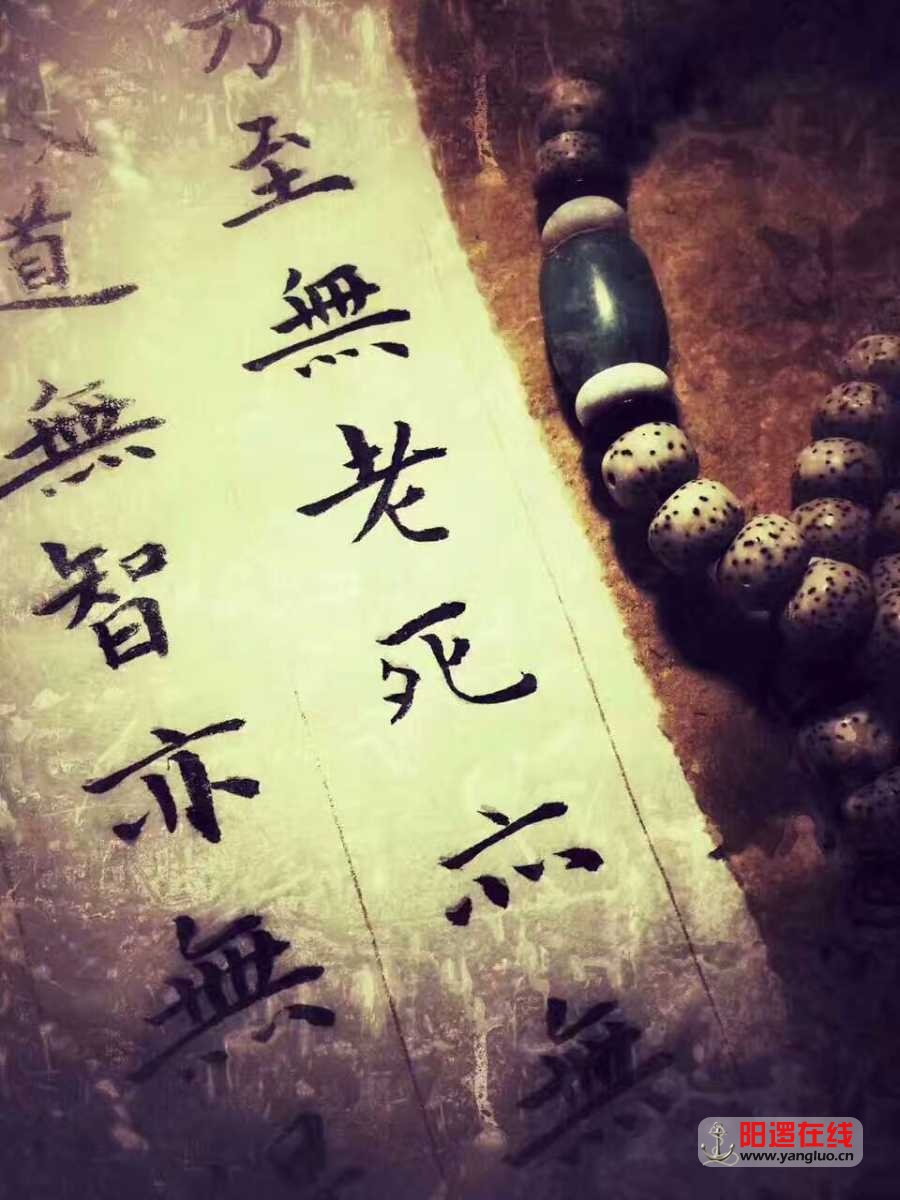 乃至無老死亦無
道無智亦無
阳逻在线
www.yangluo.cn